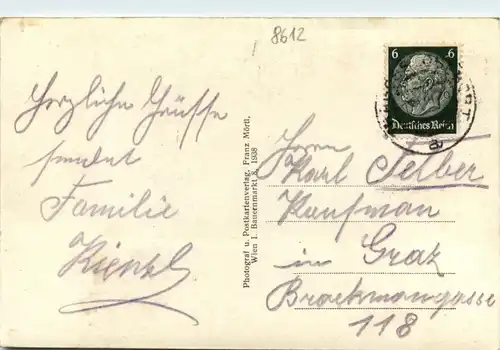 8612
Herzliche Grüsse
sendet
Familie
Kienzl
Photograf u. Postkartenverlag, Franz Mörtl,
Wien I. Bauernmarkt 8, 1938
6 6
Deutsches Reich
a
Herrn
Karl Ferber
Kaufman
in Graz
Brockmanngasse
118